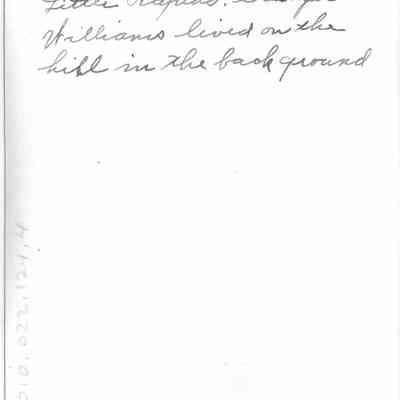 Little Rapids.
Williams lived on the
hill in the background
010.022.124.4